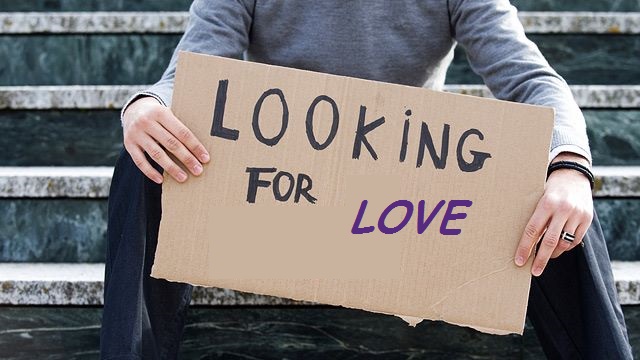 LOOKiNG
FOR LOVE